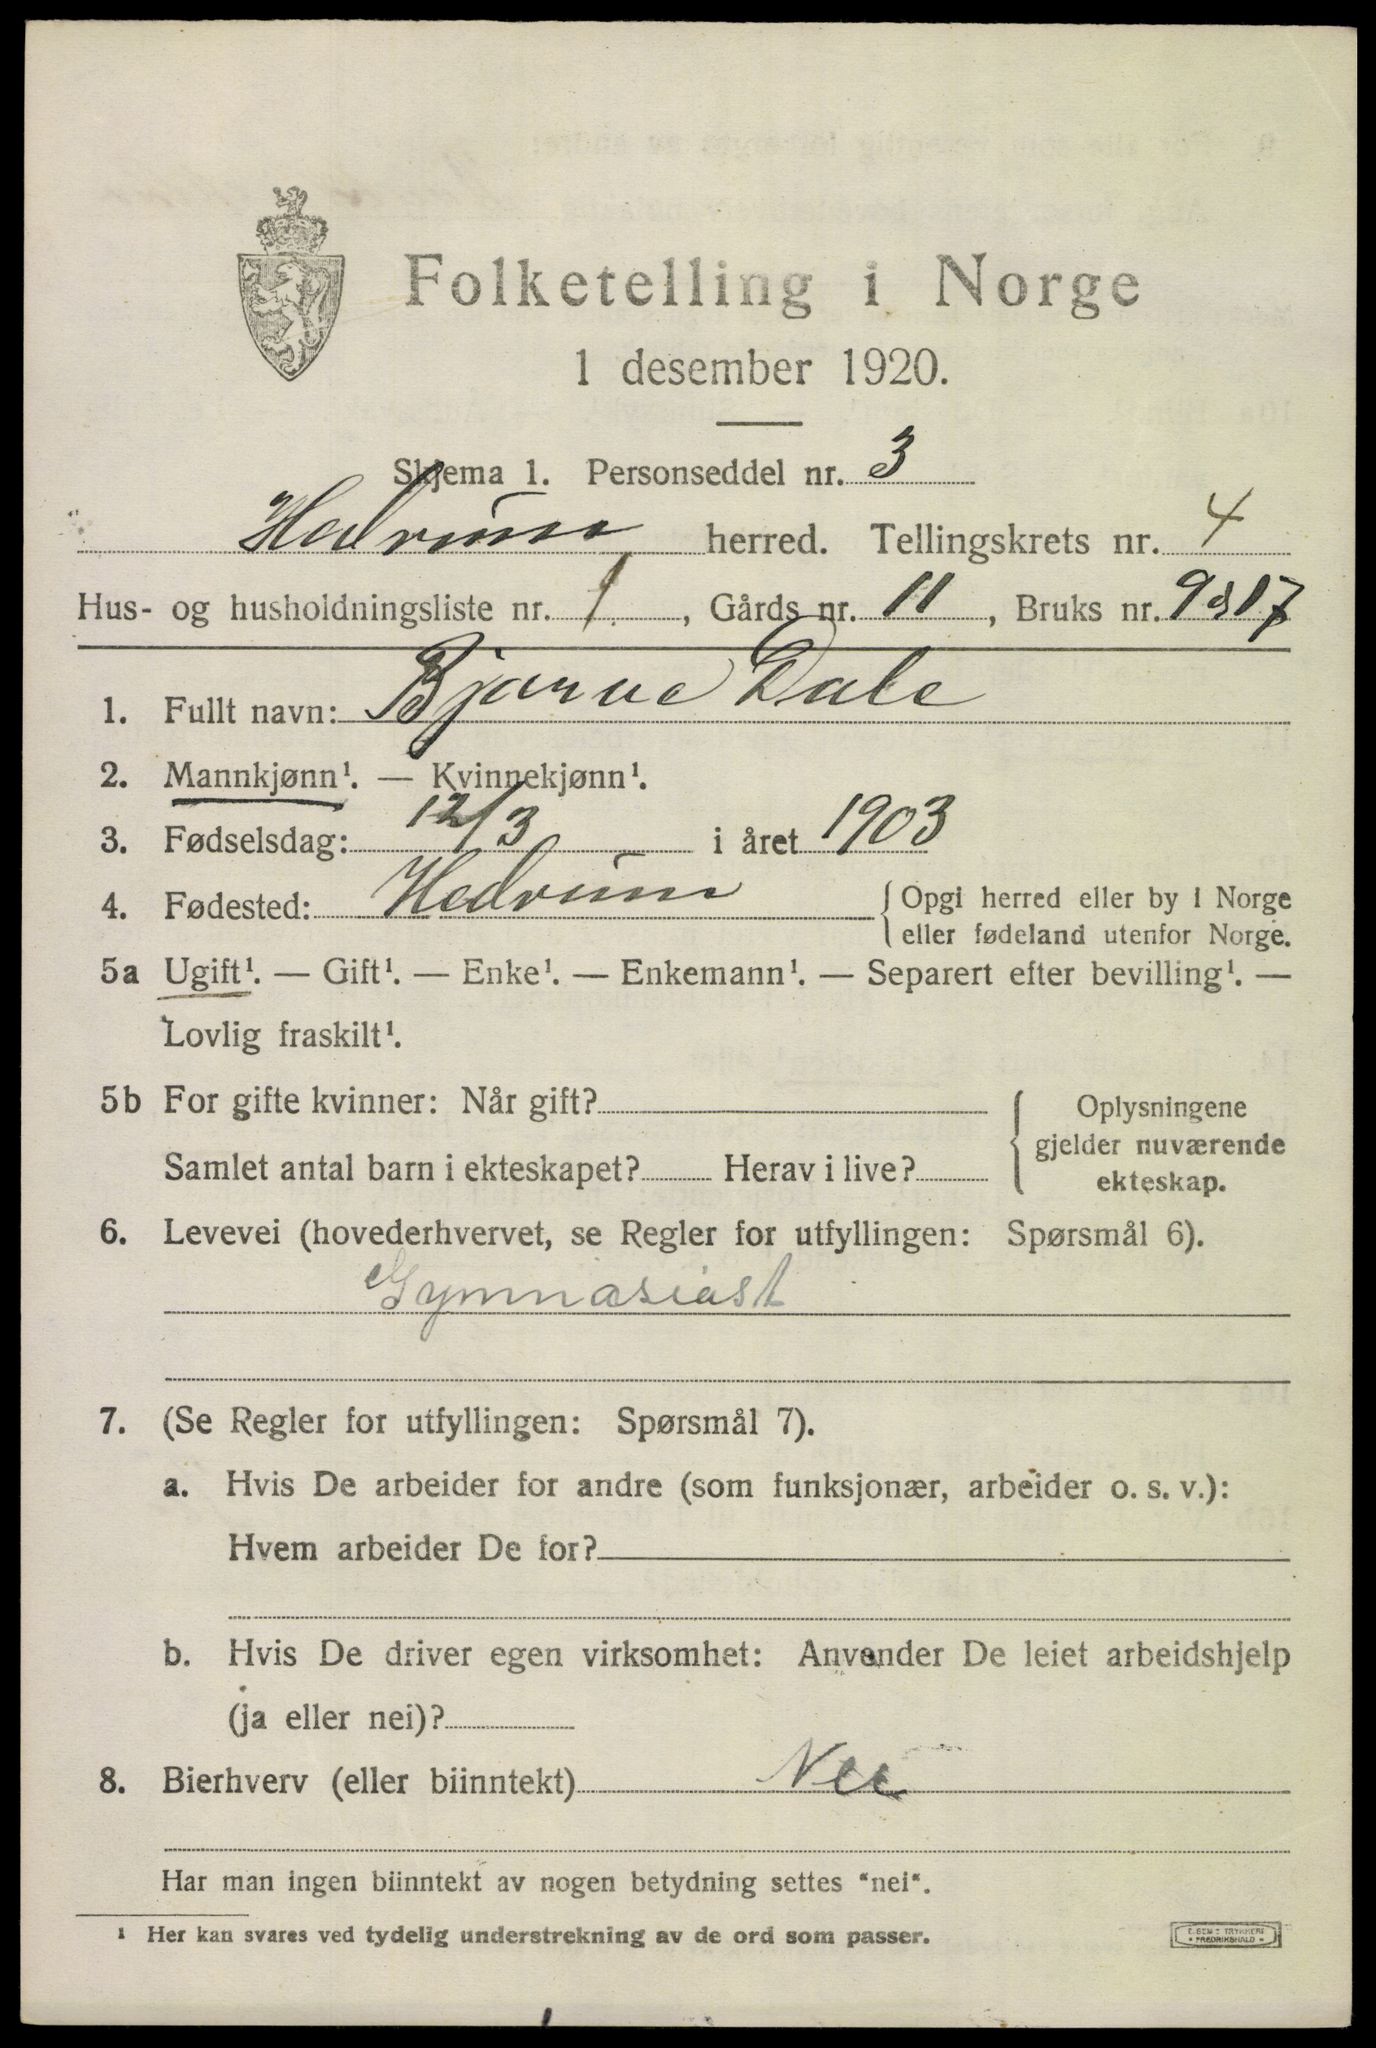 Folketelling i Norge
1 desember 1920.
Skjema 1. Personseddel nr. 3
Hedrum herred. Tellingskrets nr. 4
Hus- og husholdningsliste nr. 1, Gårds nr. 11, Bruks nr. 9&17
1. Fullt navn: Bjarne Dale
2. Mannkjønn¹. — Kvinnekjønn¹.
3. Fødselsdag: 12/3 i året 1903
4. Fødested: Hedrum {Opgi herred eller by i Norge
eller fødeland utenfor Norge.
5a Ugift¹. — Gift¹. — Enke¹. — Enkemann¹. — Separert efter bevilling¹. —
Lovlig fraskilt¹.
5b For gifte kvinner: Når gift? { Oplysningene
gjelder nuværende
Samlet antal barn i ekteskapet? Herav i live?
ekteskap.
6. Levevei (hovederhvervet, se Regler for utfyllingen: Spørsmål 6).
Gymnasiast
7. (Se Regler for utfyllingen: Spørsmål 7).
a. Hvis De arbeider for andre (som funksjonær, arbeider o. s. v.):
Hvem arbeider De for?
b. Hvis De driver egen virksomhet: Anvender De leiet arbeidshjelp
(ja eller nei)?
8. Bierhverv (eller biinntekt) Nei
Har man ingen biinntekt av nogen betydning settes "nei".
¹ Her kan svares ved tydelig understrekning av de ord som passer.
TRYKKERI
FREDRIKSHALD